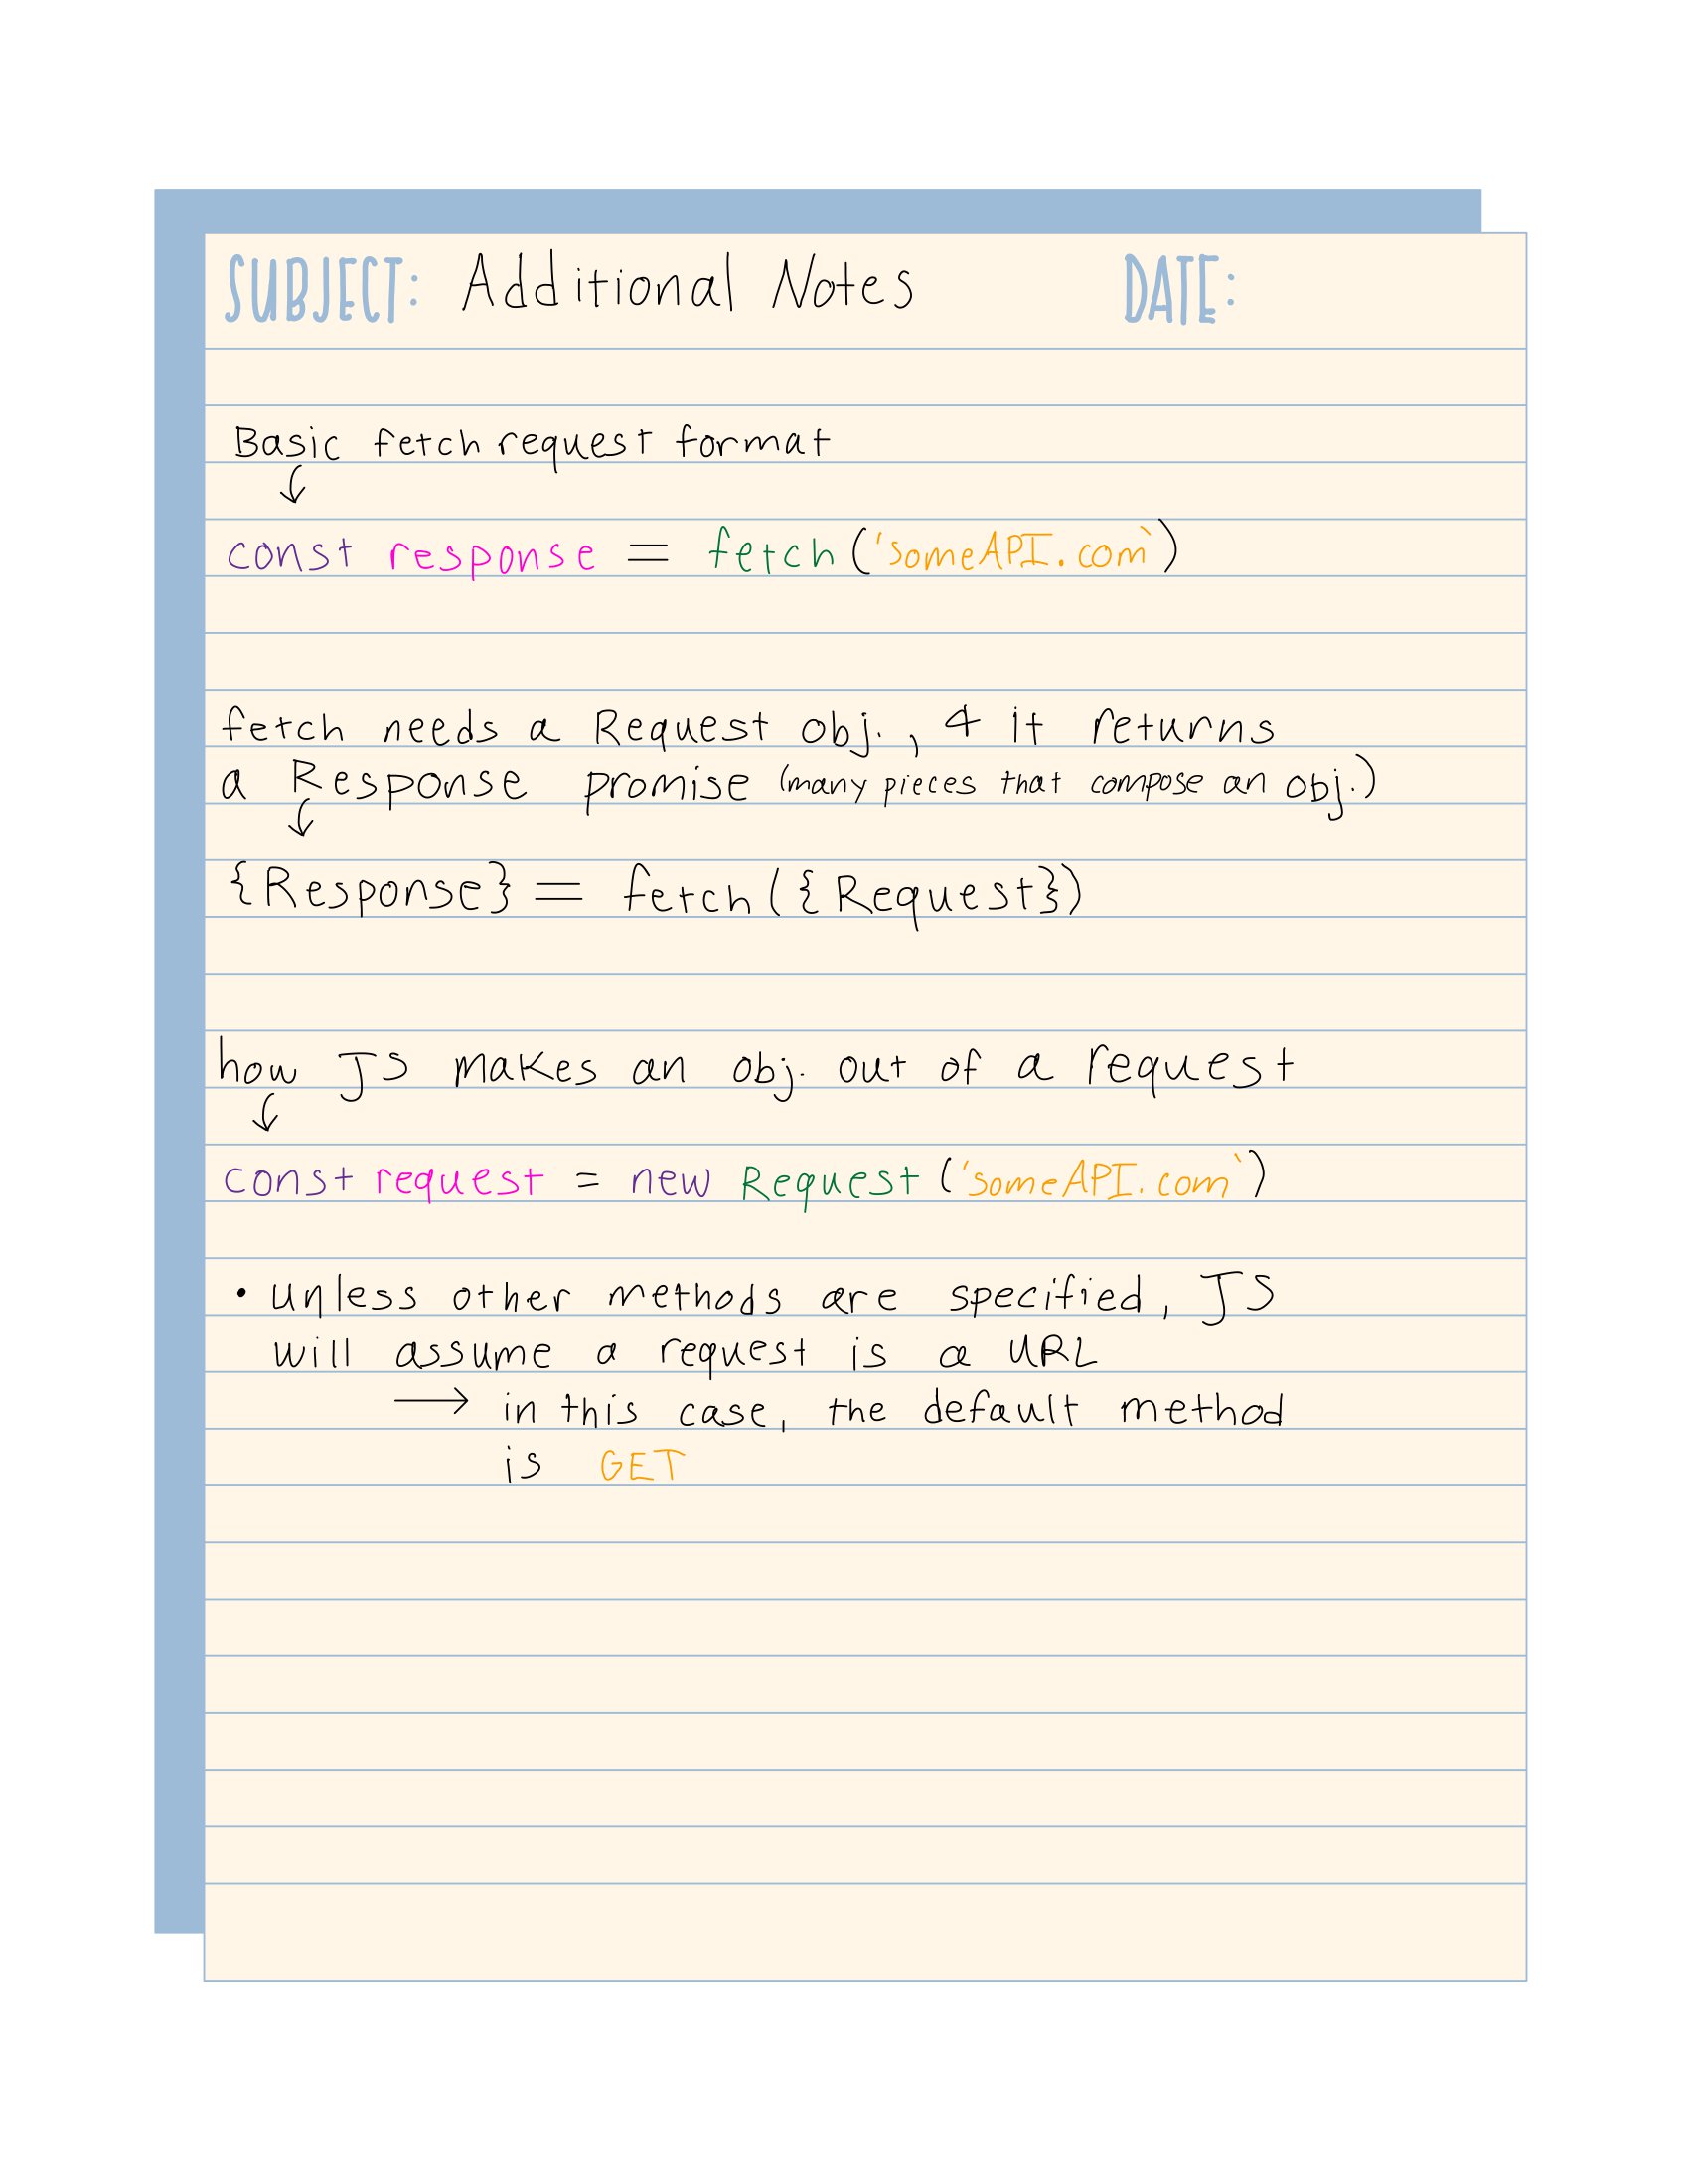 SUBJECT: Additional Notes DATE:
Basic fetch request format
↓
const response = fetch ('someAPI.com`)
fetch needs a Request obj., & it returns
a Response promise (many pieces that compose an obj.)
↓
{Response} = fetch ({Request})
how JS makes an obj. out of a request
↓
const request = new Request ('someAPI.com`)
• unless other methods are specified, JS
will assume a request is a URL
→ in this case, the default method
is GET